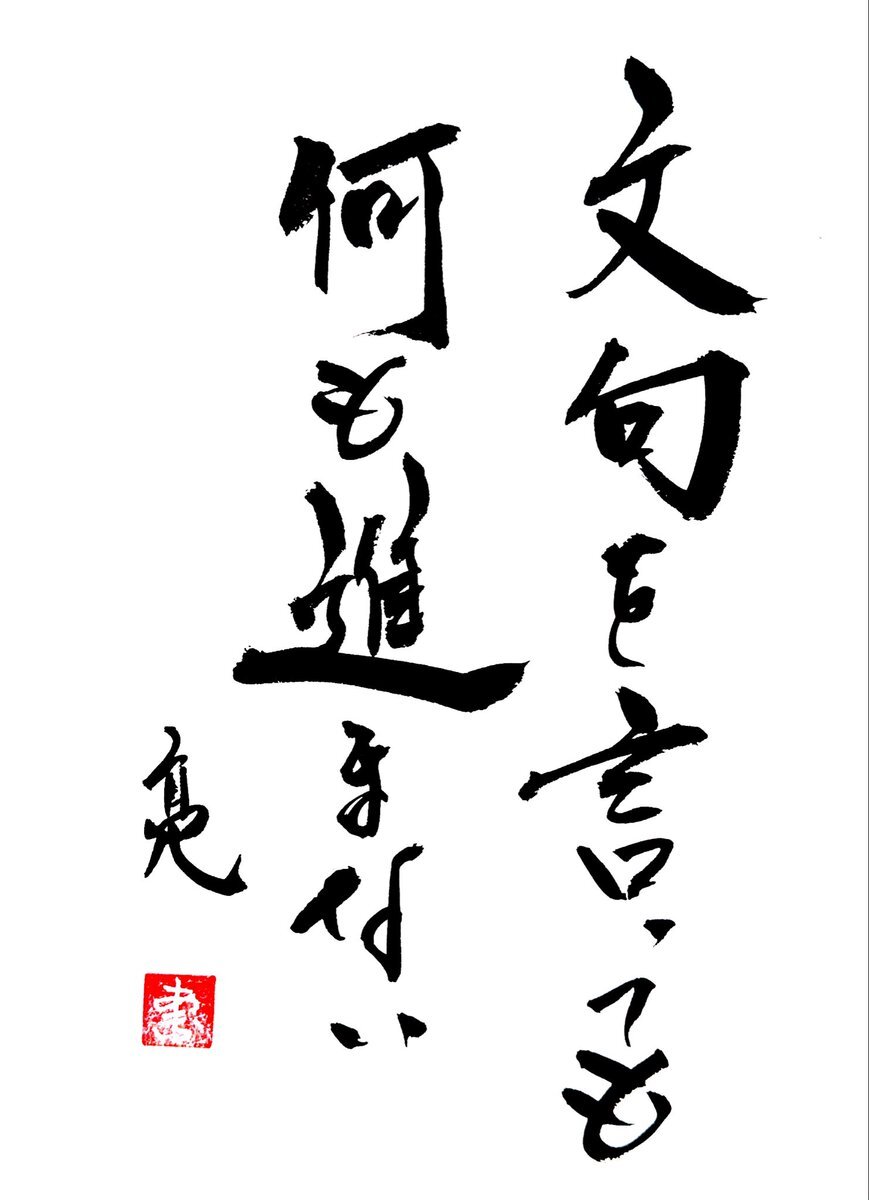 文句を言っても
何も進まない
亮